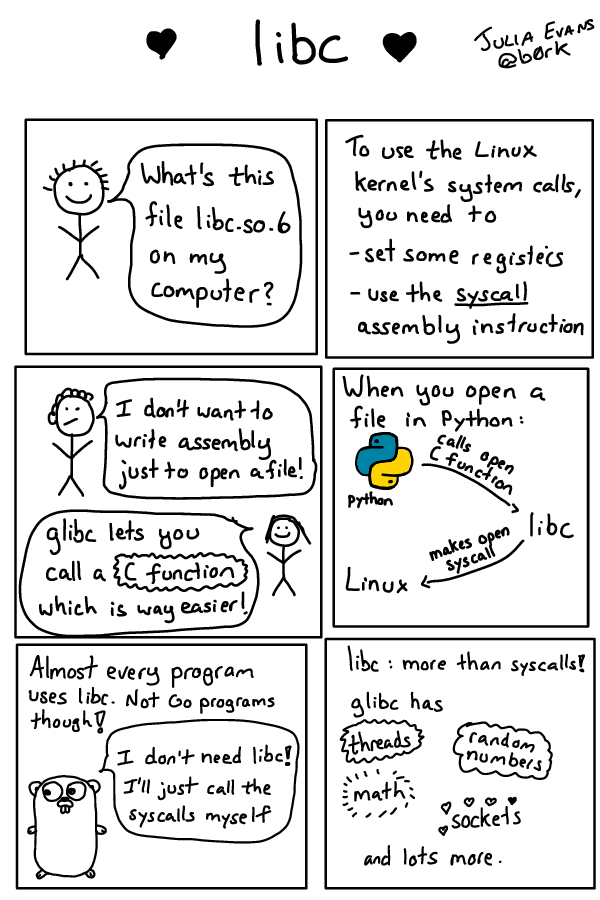 ♥ libc ♥
JULIA EVANS
@b0rk
What's this
file libc.so.6
on my
computer?
To use the Linux
kernel's system calls,
you need to
- set some registers
- use the syscall
assembly instruction
I don't want to
write assembly
just to open a file!
glibc lets you
call a C function
which is way easier!
When you open a
file in Python:
python
calls open
C function
libc
makes open
syscall
Linux
Almost every program
uses libc. Not Go programs
though!
I don't need libc!
I'll just call the
syscalls myself
libc: more than syscalls!
glibc has
threads
random
numbers
math
sockets
and lots more.